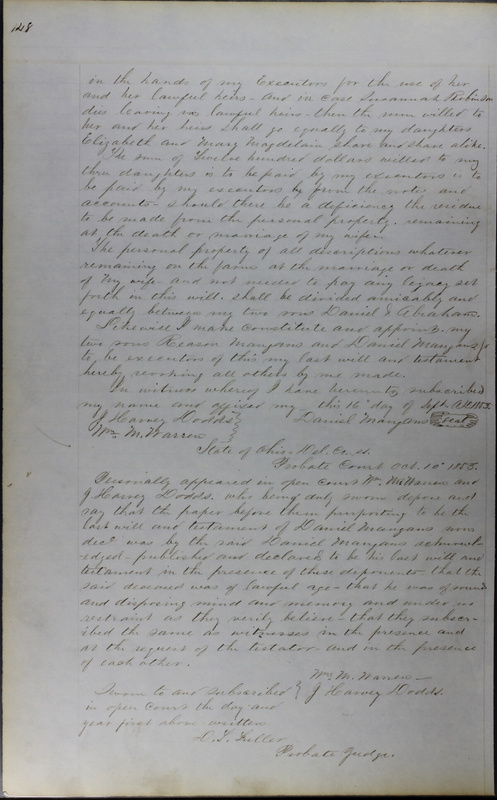 128
in the hands of my Executors for the use of her
and her lawful heirs - And in case Susannah Robinson
dies leaving no lawful heirs - then the sum willed to
her and her heirs shall go equally to my daughters
Elizabeth and Mary Magdelain share and share alike.
The sum of Twelve hundred dollars willed to my
three daughters is to be paid by my executors is to
be paid by my executors by from the notes and
accounts - should there be a deficiency the residue
to be made from the personal property - remaining
at the death or marriage of my wife.
The personal property of all descriptions whatever
remaining on the farm at the marriage or death
of my wife - and not needed to pay any legacy set
forth in this will - shall be divided amicably and
equally between my two sons Daniel & Abraham.
I likewise make constitute and appoint my
two sons Reason Mangans and Daniel Mangans Jr
to be executors of this my last will and testament
hereby revoking all others by me made.
In witness whereof I have hereunto subscribed
my name and affixed my this 16th day of Sept. AD 1853
J Harvey Dodds } Daniel Mangans seal
Wm. M. Warren }
State of Ohio Del. Co. ss.
Probate Court Oct. 10th 1853.
Personally appeared in open Court Wm M Warren and
J Harvey Dodds, who being duly sworn depose and
say that the paper before them purporting to be the
last will and testament of Daniel Mangans now
decd was by the said Daniel Mangans acknowl-
edged - published and declared to be his last will and
testament in the presence of these deponents - that the
said deceased was of lawful age - that he was of sound
and disposing mind and memory and under no
restraint as they verily believe - that they subscr-
ibed the same as witnesses in the presence and
at the request of the testator and in the presence
of each other.
Wm. M. Warren
Sworn to and subscribed } J Harvey Dodds.
in open Court the day and
year first above written
D. T. Fuller
Probate Judge.